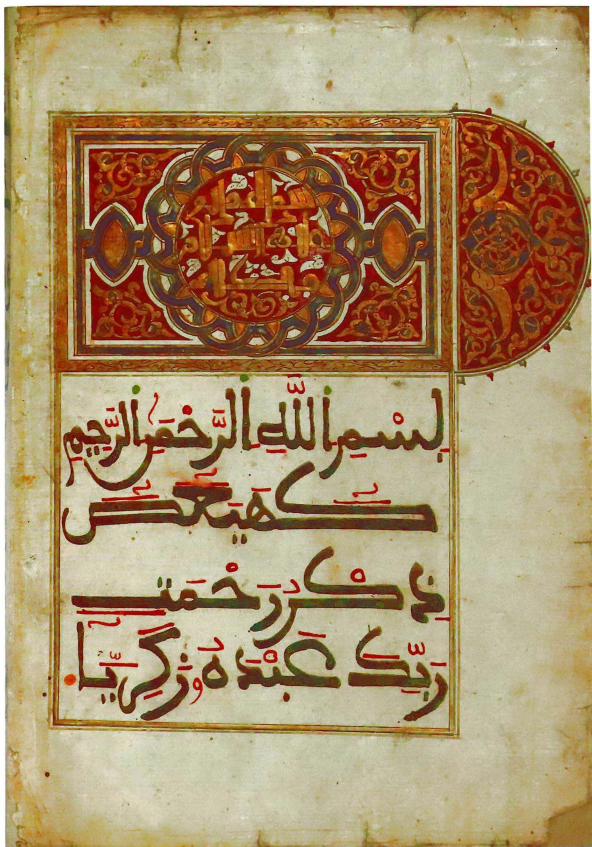 بِسْمِ اللَّهِ الرَّحْمَٰنِ الرَّحِيمِ
كهيعص
ذِكْرُ رَحْمَتِ
رَبِّكَ عَبْدَهُ زَكَرِيَّا